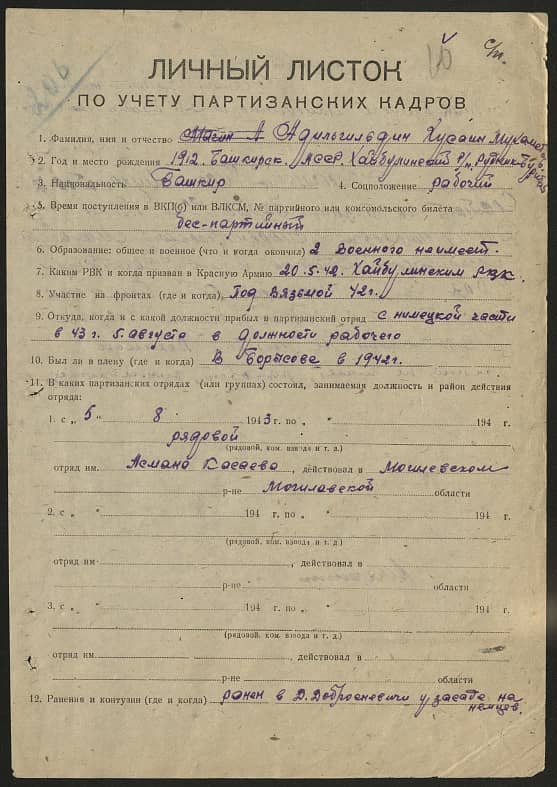 ЛИЧНЫЙ ЛИСТОК
ПО УЧЕТУ ПАРТИЗАНСКИХ КАДРОВ
1. Фамилия, имя и отчество Адильгильдин Хусаин Мухамет
2. Год и место рождения 1912. Башкирск. АССР. Хайбулинский Р/н.
3. Национальность Башкир 4. Соцположение рабочий
5. Время поступления в ВКП(б) или ВЛКСМ, № партийного или комсомольского билета
бес-партийный
6. Образование: общее и военное (что и когда окончил) 2 Военного неимеет.
7. Каким РВК и когда призван в Красную Армию 20.5.42. Хайбулинским РВК.
8. Участие на фронтах (где и когда), Под Вязьмой 42г.
9. Откуда, когда и с какой должности прибыл в партизанский отряд с нимецкой части
в 43 г. 5. августа в должности рабочего
10. Был ли в плену (где и когда) В Борысове в 1942г.
11. В каких партизанских отрядах (или группах) состоял, занимаемая должность и район действия
отряда:
1. с „ 5 „ 8 1943 г. по „ „ 194 г.
рядовой
(рядовой, ком. взвода и т. д.)
отряд им. Асмана Касаева, действовал в Могилевском
р-не Могилавской области
2. с „ „ 194 г. по „ „ 194 г.
(рядовой, ком. взвода и т. д.)
отряд им. , действовал в
р-не области
3. с „ „ 194 г. по „ „ 194 г.
(рядовой, ком. взвода и т. д.)
отряд им. действовал в
р-не области
12. Ранения и контузии (где и когда) ранен в Д. Доброеневичи у засаде на
немцев.